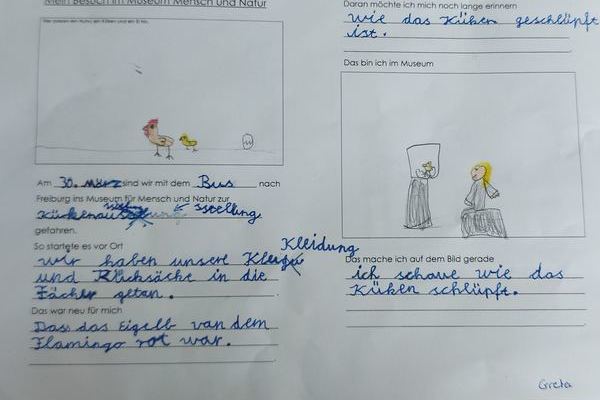 Mein Besuch im Museum Mensch und Natur
Am 30. März sind wir mit dem Bus nach
Freiburg ins Museum für Mensch und Natur zur
Kückenausstellung
gefahren.
So startete es vor Ort
Kleidung
wir haben unsere
und Rücksäcke in die
Fächer getan.
Das war neu für mich
Das das Eigelb van dem
Flamingo rot war.
Daran möchte ich mich noch lange erinnern
wie das Küken geschlüpft
ist.
Das bin ich im Museum
Das mache ich auf dem Bild gerade
ich schaue wie das
Küken schlüpft.
Greta